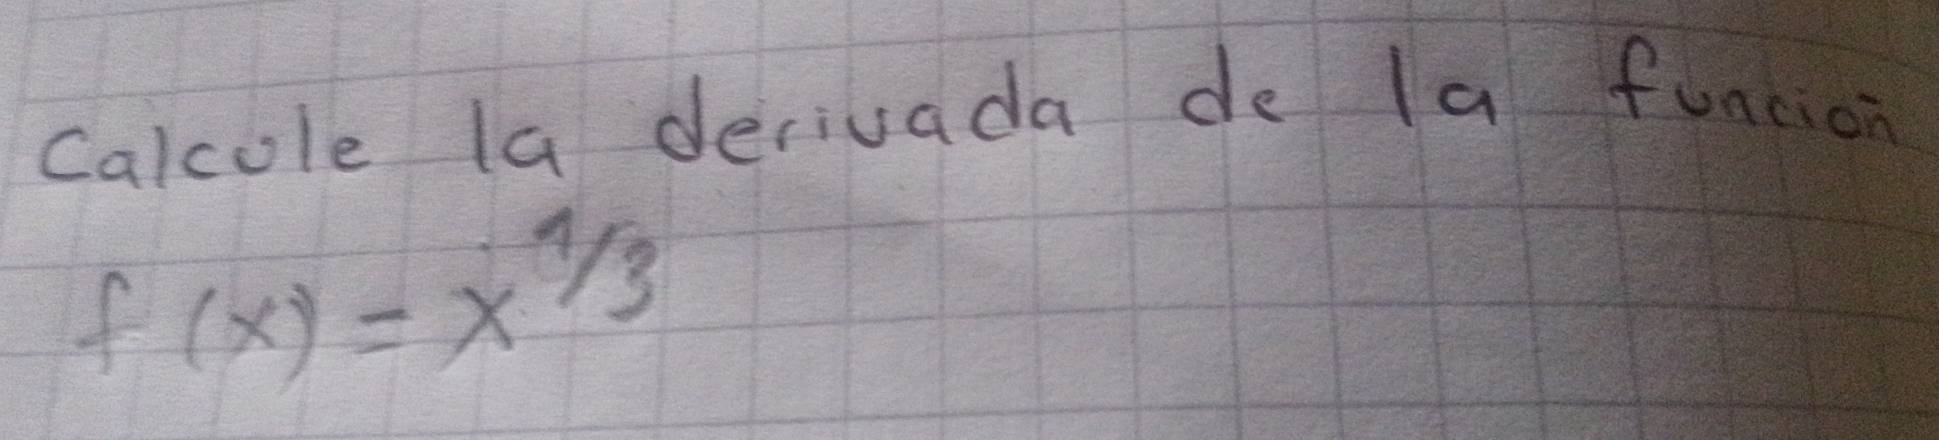 Calcule la derivada de la función
f(x) = x^1/3